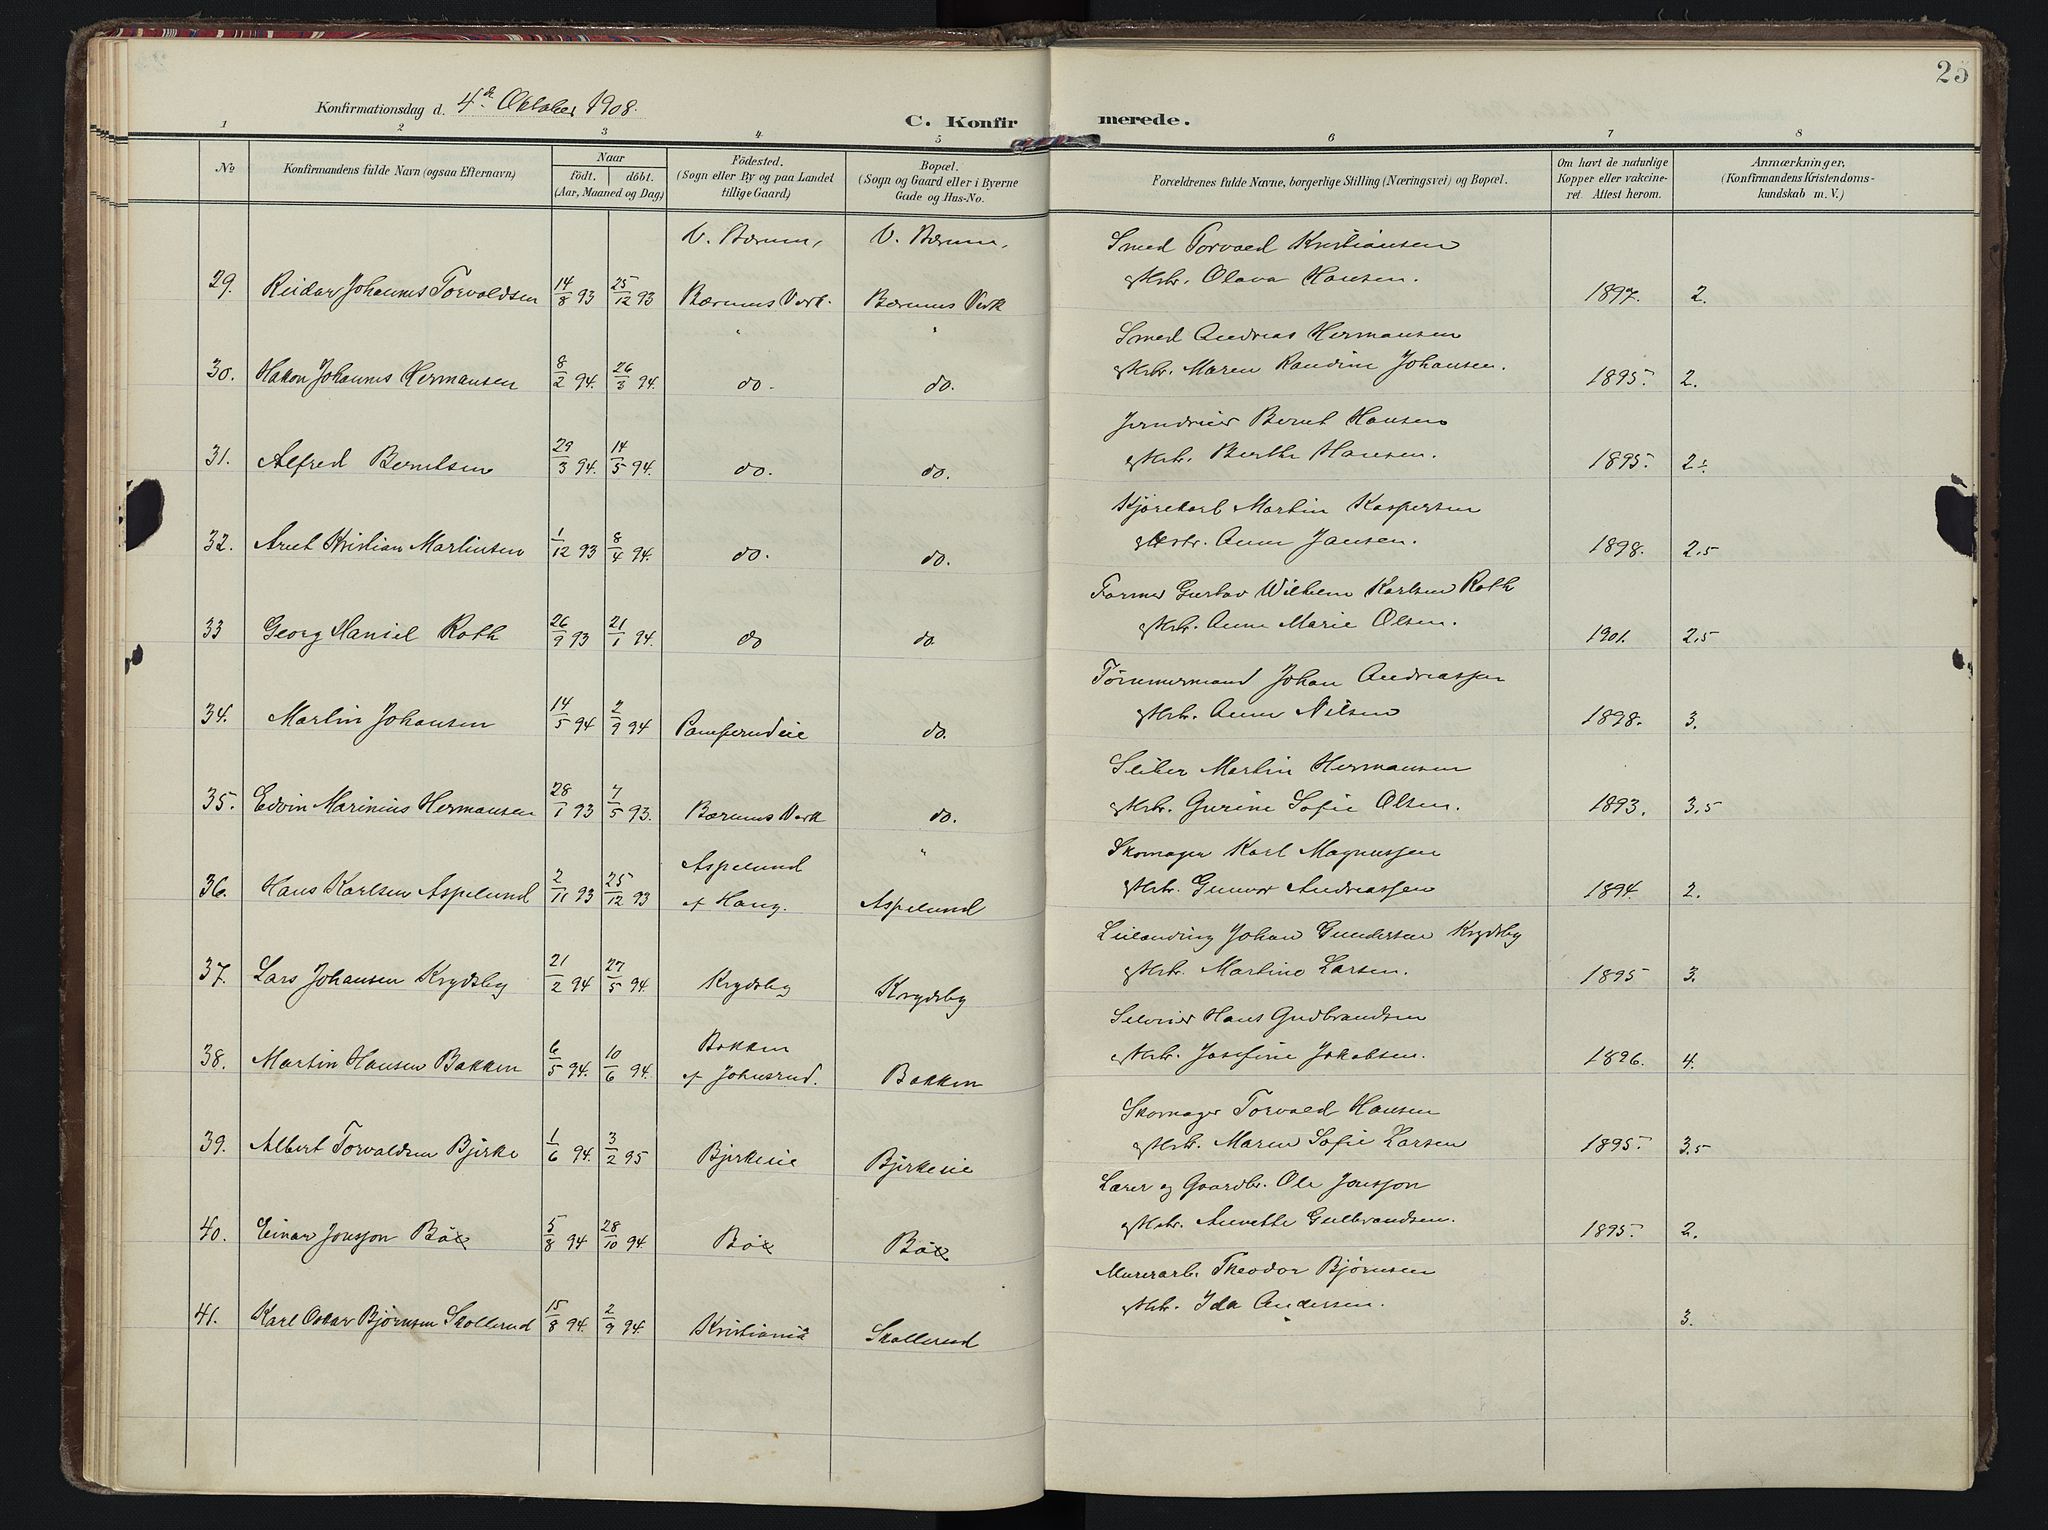 25
Konfirmationsdag d. 4de Oktober 1908.
C. Konfirmerede.
1 2 3 4 5 6 7 8
No Konfirmandens fulde Navn (ogsaa Efternavn) Naar födt. döbt. (Aar, Maaned og Dag) Födested. (Sogn eller By og paa Landet tillige Gaard) Bopæl. (Sogn og Gaard eller i Byerne Gade og Hus-No. Forældrenes fulde Navne, borgerlige Stilling (Næringsvei) og Bopæl. Om havt de naturlige Kopper eller vakcineret. Attest herom. Anmærkninger, (Konfirmandens Kristendomskundskab m. V.)
V. Bærum, V. Bærum, Smed Torvald Kristiansen
29. Reidar Johannes Torvaldsen 14/8 93 25/12 93 Bærums Verk. Bærums Verk og Hstr. Olava Hansen. 1897. 2.
" " Smed Andreas Hermansen
30. Hakon Johannes Hermansen 8/2 94. 26/3 94. do. do. og Hstr. Maren Randine Johansen. 1895. 2.
Jerndreier Bernt Hansen
31. Alfred Berntsen 29/3 94. 14/5 94. do. do. og Hstr. Berthe Hansen. 1895. 2.
Kjørekarl Martin Kaspersen
32. Arnt Kristian Martinsen 1/12 93 8/4 94. do. do. og Hstr. Anne Jansen. 1898. 2,5
Former Gustav Wilhelm Karlsen Roth
33 Georg Daniel Roth 26/9 93 21/1 94. do do. og Hstr. Anne Marie Olsen. 1901. 2,5
Tømmermand Johan Andreassen
34. Martin Johansen 14/5 94 2/9 94 Pamperudeie do. og Hstr. Anne Nilsen 1898. 3.
Sliber Martin Hermansen
35. Edvin Marinius Hermansen 28/1 93 7/5 93. Bærums Verk do. og Hstr. Gurine Sofie Olsen. 1893. 3,5
Aspelund " Skomager Karl Magnussen
36. Hans Karlsen Aspelund 2/11 93 25/12 93 af Haug. Aspelund og Hstr. Gunvor Andreassen 1894. 2.
Leilænding Johan Gundersen Krydsby
37. Lars Johansen Krydsby 21/2 94 27/5 94. Krydsby Krydsby og Hstr. Martine Larsen. 1895 3.
Bakken Seloeier Hans Gudbrandsen
38. Martin Hansen Bakken 6/5 94. 10/6 94. af Johnsrud. Bakken og Hstr. Josefine Jakobsen. 1896. 4.
Skomager Torvald Hansen
39. Albert Torvaldsen Bjerke 1/6 94. 3/2 95 Bjerkeeie Bjerkeeie og Hstr. Maren Sofie Larsen 1895. 3,5
Lærer og Gaardbr. Ole Jonsson
40. Einar Jonsson Bøe 5/8 94 28/10 94. Bøe Bøe og Hstr. Annette Gulbrandsen. 1895. 2.
Murerarb. Theodor Bjørnsen
41. Karl Oskar Bjørnsen Skollerud 15/8 94. 2/9 94. Kristiania Skollerud og Hstr. Ida Andersen. 3.